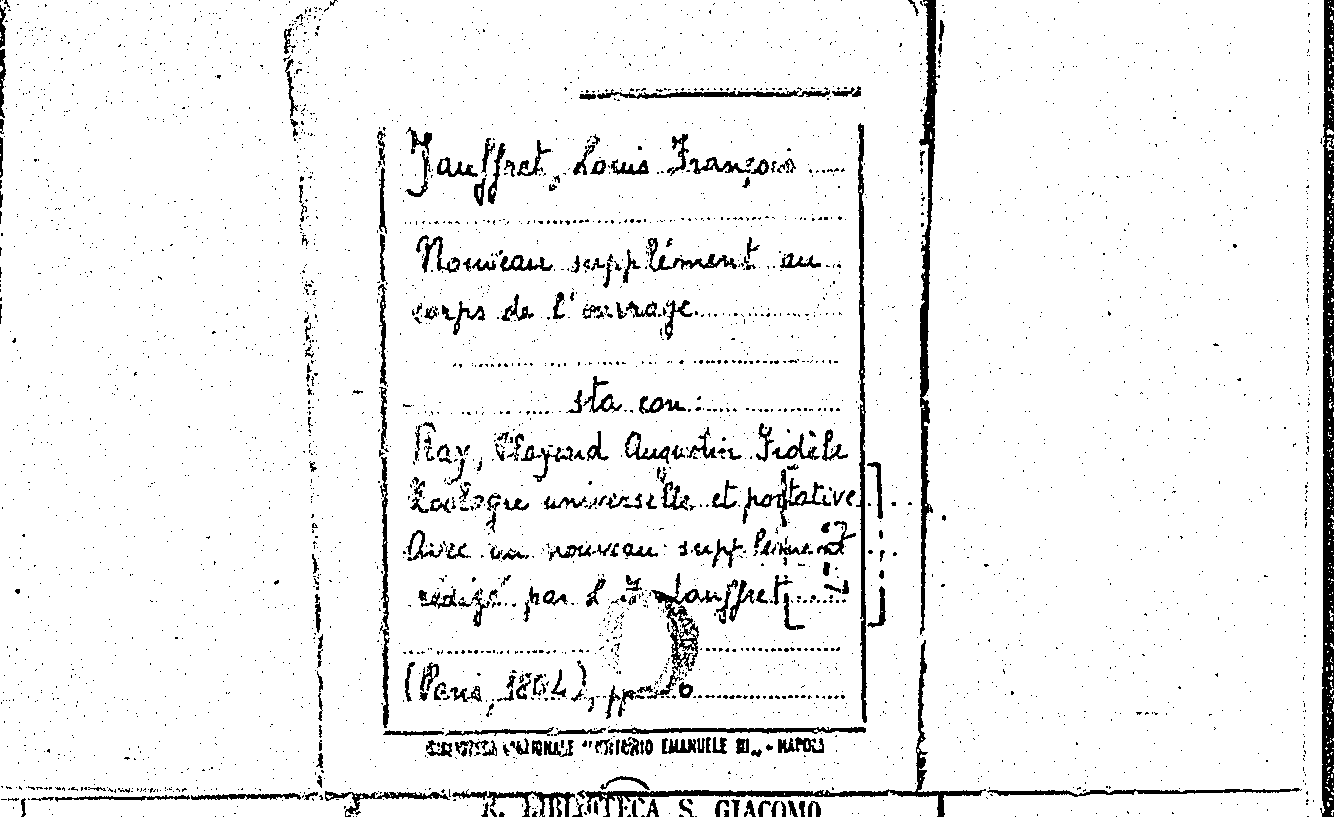 Jauffret, Louis François
Nouveau supplément au
corps de l'ouvrage
sta con:
Ray, Augustin Fidèle
Zoologie universelle et portative
Avec un nouveau supplément
rédigé par L F Jauffret
(Paris, 1804),
BIBLIOTECA NAZIONALE "VITTORIO EMANUELE III" - NAPOLI
R. BIBLIOTECA S. GIACOMO